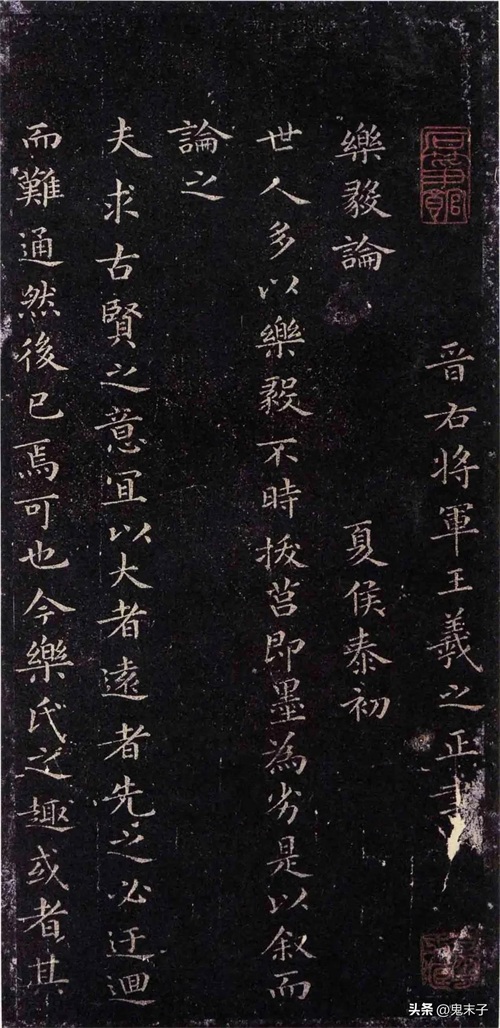 晋右將軍王羲之正書
樂毅論
夏侯泰初
世人多以樂毅不時拔莒即墨為劣是以叙而
論之
夫求古賢之意宜以大者遠者先之必迂迴
而難通然後已焉可也今樂氏之趣或者其
头条 @鬼末子